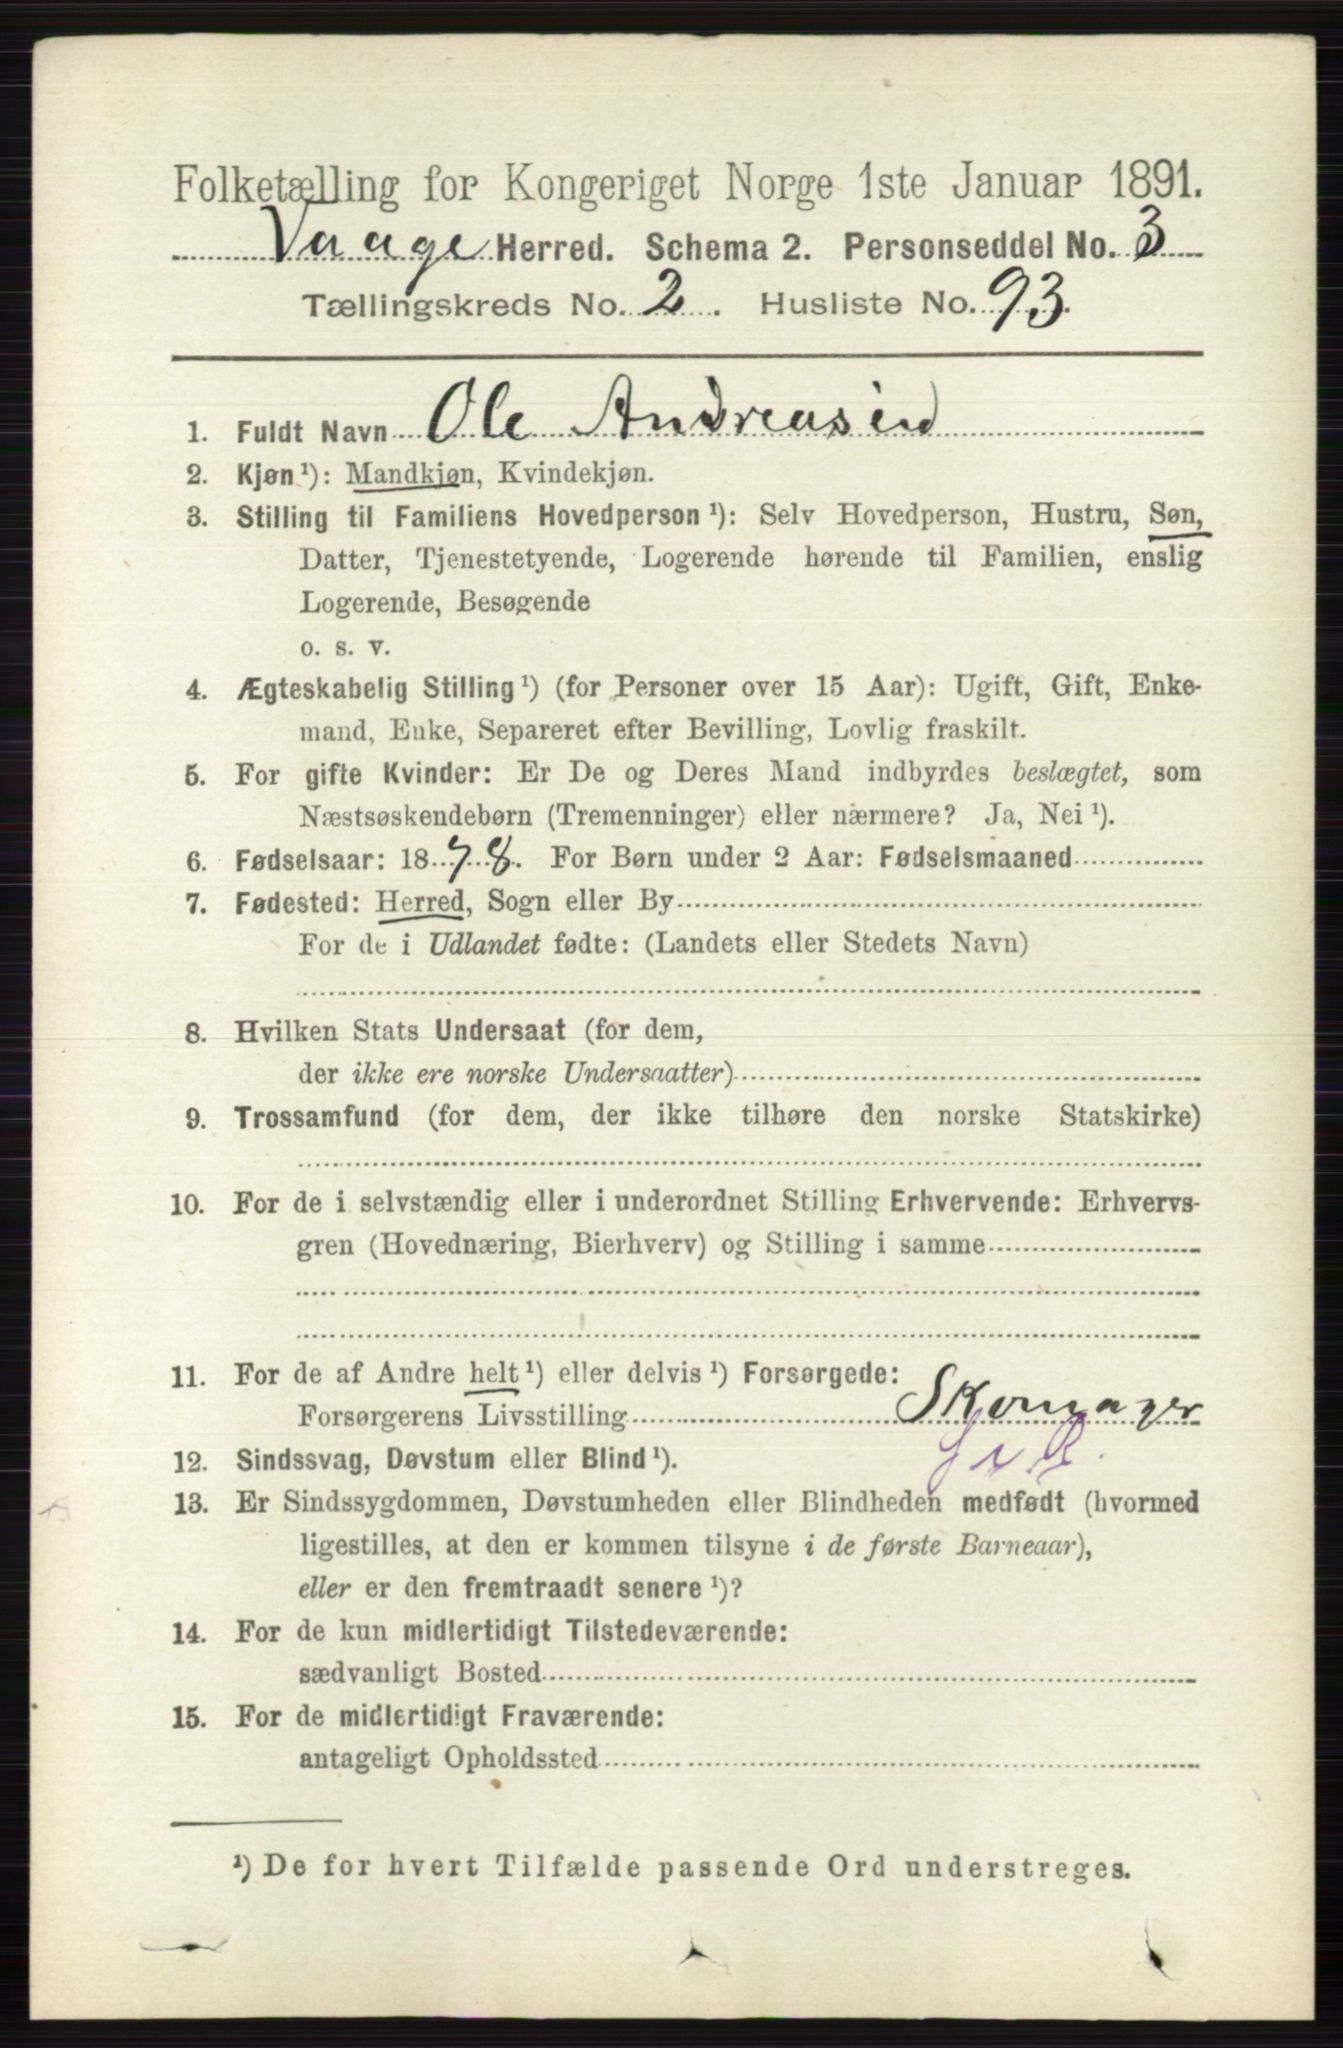 Folketælling for Kongeriget Norge 1ste Januar 1891.
Vaage Herred. Schema 2. Personseddel No. 3
Tællingskreds No. 2. Husliste No. 93.
1. Fuldt Navn Ole Andreasen
2. Kjøn ¹): Mandkjøn, Kvindekjøn.
3. Stilling til Familiens Hovedperson ¹): Selv Hovedperson, Hustru, Søn,
Datter, Tjenestetyende, Logerende hørende til Familien, enslig
Logerende, Besøgende
o. s. v.
4. Ægteskabelig Stilling ¹) (for Personer over 15 Aar): Ugift, Gift, Enke-
mand, Enke, Separeret efter Bevilling, Lovlig fraskilt.
5. For gifte Kvinder: Er De og Deres Mand indbyrdes beslægtet, som
Næstsøskendebørn (Tremenninger) eller nærmere? Ja, Nei ¹).
6. Fødselsaar: 1878. For Børn under 2 Aar: Fødselsmaaned
7. Fødested: Herred, Sogn eller By
For de i Udlandet fødte: (Landets eller Stedets Navn)
8. Hvilken Stats Undersaat (for dem,
der ikke ere norske Undersaatter)
9. Trossamfund (for dem, der ikke tilhøre den norske Statskirke)
10. For de i selvstændig eller i underordnet Stilling Erhvervende: Erhvervs-
gren (Hovednæring, Bierhverv) og Stilling i samme
11. For de af Andre helt ¹) eller delvis ¹) Forsørgede:
Forsørgerens Livsstilling Skomager
12. Sindssvag, Døvstum eller Blind ¹).
13. Er Sindssygdommen, Døvstumheden eller Blindheden medfødt (hvormed
ligestilles, at den er kommen tilsyne i de første Barneaar),
eller er den fremtraadt senere ¹)?
14. For de kun midlertidigt Tilstedeværende:
sædvanligt Bosted
15. For de midlertidigt Fraværende:
antageligt Opholdssted
¹) De for hvert Tilfælde passende Ord understreges.